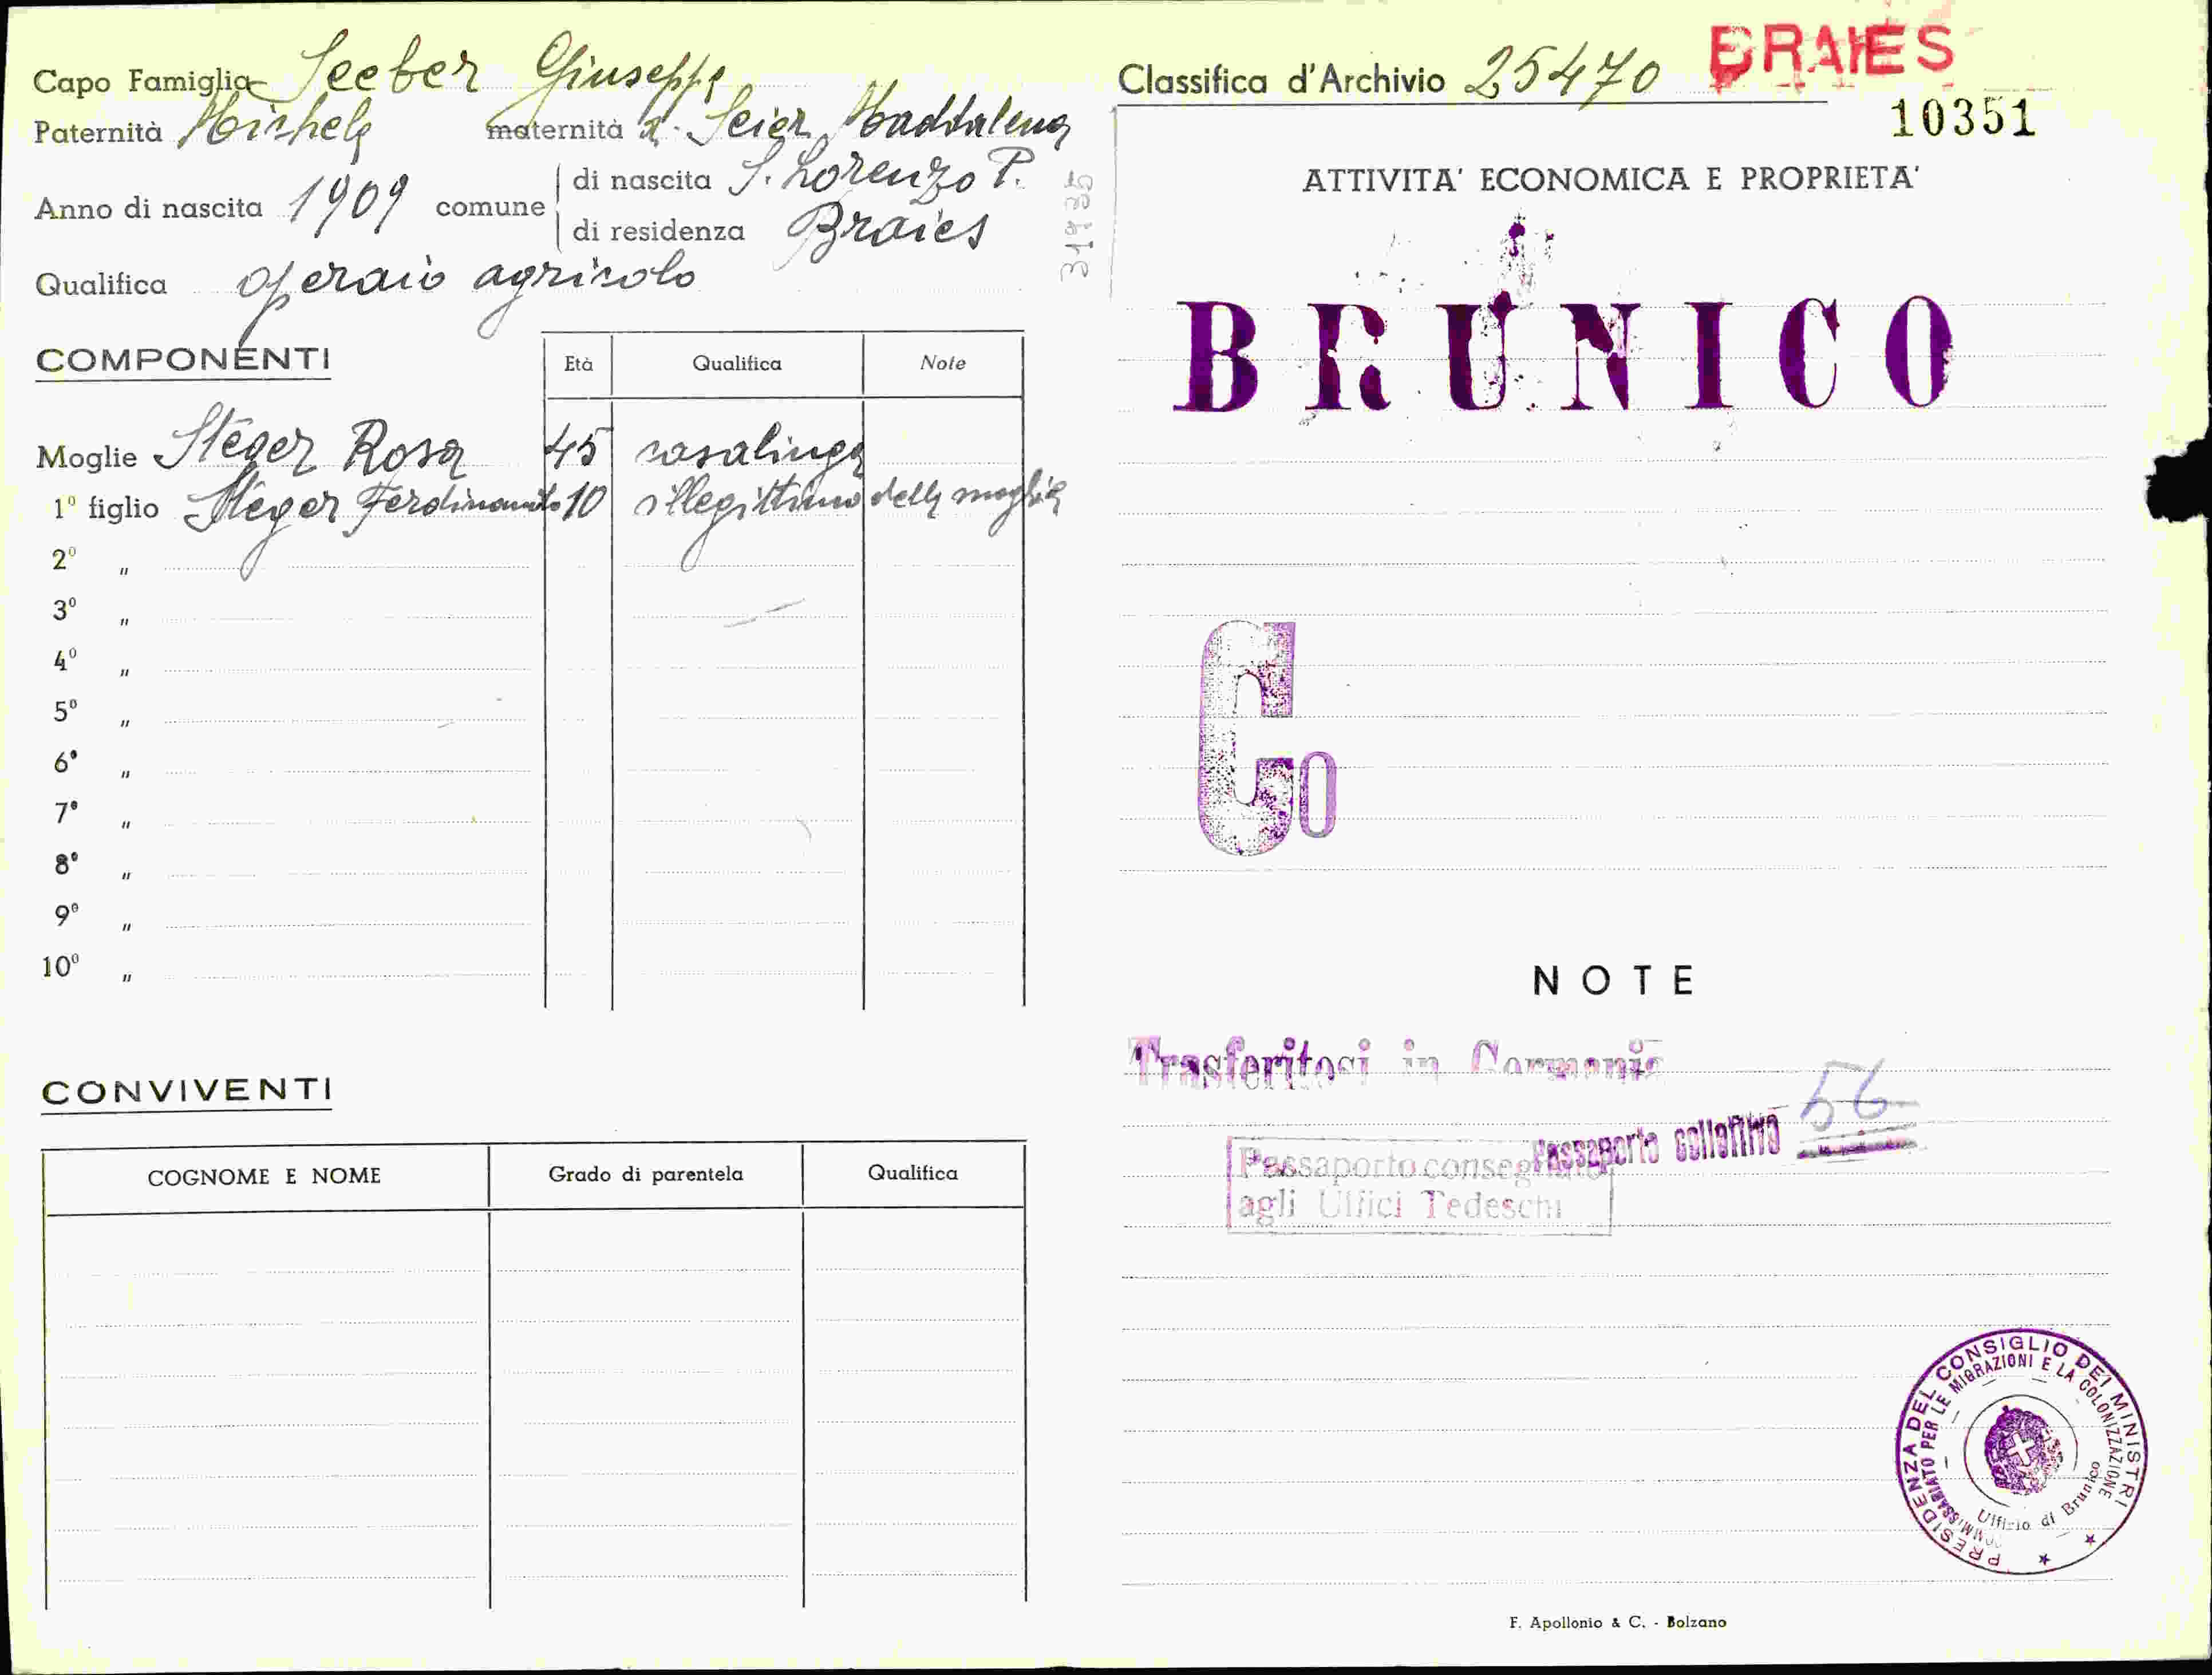 Capo Famiglia Seeber Giuseppe
Paternità Michele maternità Maddalena
Anno di nascita 1909 comune di nascita S. Lorenzo P.
di residenza Braies
Qualifica operaio agricolo
31935
COMPONENTI Età Qualifica Note
Moglie Steger Rosa 45 casalinga
1º figlio Steger Ferdinando 10 illegittimo della moglie
2º "
3º "
4º "
5º "
6º "
7º "
8º "
9º "
10º "
CONVIVENTI
COGNOME E NOME Grado di parentela Qualifica
Classifica d'Archivio 25470 BRAIES
10351
ATTIVITA' ECONOMICA E PROPRIETA'
BRUNICO
Co
NOTE
Trasferitosi in Germania
Passaporto collettivo 56
Passaporto consegnato
agli Uffici Tedeschi
PRESIDENZA DEL CONSIGLIO DEI MINISTRI
COMMISSARIATO PER LE MIGRAZIONI E LA COLONIZZAZIONE
Ufficio di Brunico
F. Apollonio & C. - Bolzano